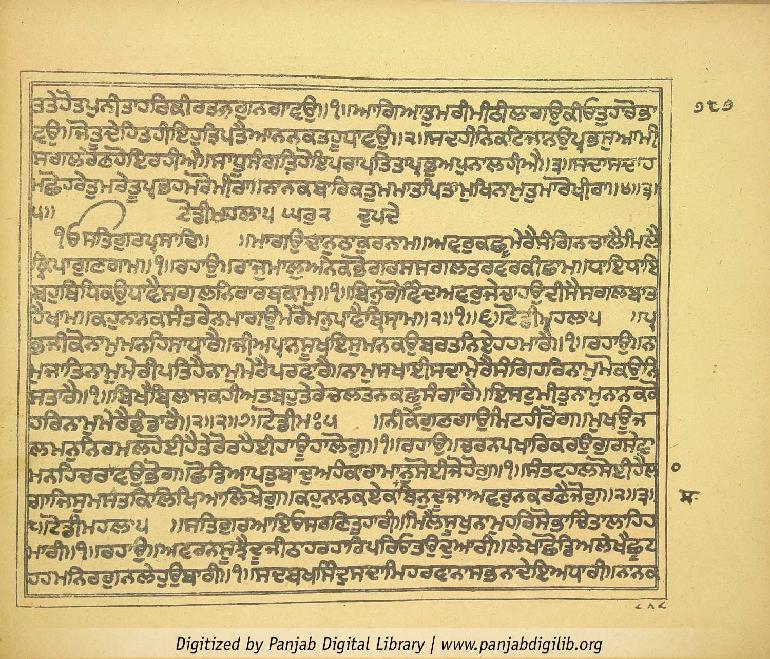 ਤਤੇਹੋਤਪੁਨੀਤਾਹਰਿਕੀਰਤਨਗੁਨਗਾਵਉ॥੧॥ਆਗਿਆਤੁਮਰੀਮੀਠੀਲਾਗਉਕੀਓਤੁਹਾਰੋਭਾ
ਵਉ॥ਜੋਤੂਦੇਹਿਤਹੀਇਹੁਤ੍ਰਿਪਤੈਆਨਨਕਤਹੂਧਾਵਉ॥੨॥ਸਦਹੀਨਿਕਟਿਜਾਨਉਪ੍ਰਭਸੁਆਮੀ
ਸਗਲਰੇਣਹੋਇਰਹੀਐ॥ਸਾਧੂਸੰਗਤਿਹੋਇਪਰਾਪਤਿਤਾਪ੍ਰਭੁਅਪੁਨਾਲਹੀਐ॥੩॥ਸਦਾਸਦਾਹ
ਮਛੋਹਰੇਤੁਮਰੇਤੂਪ੍ਰਭਹਮਰੋਮੀਰਾ॥ਨਾਨਕਬਾਰਿਕਤੁਮਮਾਤਪਿਤਾਮੁਖਿਨਾਮੁਤੁਮਾਰੋਖੀਰਾ॥੪॥੩॥
੫॥ ਟੋਡੀਮਹਲਾ੫ ਘਰੁ੨ ਦੁਪਦੇ
ੴਸਤਿਗੁਰਪ੍ਰਸਾਦਿ॥ ॥ਮਾਗਉਦਾਨੁਠਾਕੁਰਨਾਮ॥ਅਵਰੁਕਛੂਮੇਰੈਸੰਗਿਨਚਾਲੈਮਿਲੈ
ਕ੍ਰਿਪਾਗੁਣਗਾਮ॥੧॥ਰਹਾਉ॥ਰਾਜੁਮਾਲੁਅਨੇਕਭੋਗਰਸਸਗਲਤਰਵਰਕੀਛਾਮ॥ਧਾਇਧਾਇ
ਬਹੁਬਿਧਿਕਉਧਾਵੈਸਗਲਨਿਰਾਰਥਕਾਮ॥੧॥ਬਿਨੁਗੋਵਿੰਦਅਵਰੁਜੇਚਾਹਉਦੀਸੈਸਗਲਬਾਤ
ਹੈਖਾਮ॥ਕਹੁਨਾਨਕਸੰਤਰੇਨਮਾਗਉਮੇਰੋਮਨੁਪਾਵੈਬਿਸ੍ਰਾਮ॥੨॥੧॥੬॥ਟੋਡੀਮਹਲਾ੫ ॥ਪ੍ਰ
ਭਜੀਕੋਨਾਮੁਮਨਹਿਸਾਧਾਰੈ॥ਜੀਅਪ੍ਰਾਨਸੂਖਇਸੁਮਨਕਉਬਰਤਨਿਏਹਹਮਾਰੈ॥੧॥ਰਹਾਉ॥ਨਾ
ਮੁਜਾਤਿਨਾਮੁਮੇਰੀਪਤਿਹੈਨਾਮੁਮੇਰੈਪਰਵਾਰੈ॥ਨਾਮੁਸਖਾਈਸਦਾਮੇਰੈਸੰਗਿਹਰਿਨਾਮੁਮੋਕਉਨਿ
ਸਤਾਰੈ॥੧॥ਬਿਖੈਬਿਲਾਸਕਹੀਅਤਬਹੁਤੇਰੇਚਲਤਨਕਛੂਸੰਗਾਰੈ॥ਇਸਟੁਮੀਤੁਨਾਮੁਨਾਨਕਕੋ
ਹਰਿਨਾਮੁਮੇਰੈਭੰਡਾਰੈ॥੨॥੨॥੭॥ਟੋਡੀਮਃ੫ ॥ਨੀਕੇਗੁਣਗਾਉਮਿਟਹੀਰੋਗ॥ਮੁਖਊਜ
ਲਮਨੁਨਿਰਮਲਹੋਈਹੈਤੇਰੋਰਹੈਈਹਾਊਹਾਲੋਗੁ॥੧॥ਰਹਾਉ॥ਚਰਨਪਖਾਰਿਕਰਉਗੁਰਸੇਵਾ
ਮਨਹਿਚਰਾਵਉਭੋਗ॥ਛੋਡਿਆਪਤੁਬਾਦੁਅਹੰਕਾਰਾਮਾਨੁਸੋਈਜੋਹੋਗੁ॥੧॥ਸੰਤਟਹਲਸੋਈਹੈਲਾ
ਗਾਜਿਸੁਮਸਤਕਿਲਿਖਿਆਲਿਖੋਗੁ॥ਕਹੁਨਾਨਕਏਕਬਿਨੁਦੂਜਾਅਵਰੁਨਕਰਣੈਜੋਗੁ॥੨॥੩॥
੮॥ਟੋਡੀਮਹਲਾ੫ ॥ਸਤਿਗੁਰਆਇਓਸਰਣਿਤੁਹਾਰੀ॥ਮਿਲੈਸੂਖੁਨਾਮੁਹਰਿਸੋਭਾਚਿੰਤਾਲਾਹਿਹ
ਮਾਰੀ॥੧॥ਰਹਾਉ॥ਅਵਰਨਸੂਝੈਦੂਜੀਠਾਹਰਹਾਰਿਪਰਿਓਤਉਦੁਆਰੀ॥ਲੇਖਾਛੋਡਿਅਲੇਖੈਛੂਟ
ਹਹਮਨਿਰਗੁਨਲੇਹੁਉਬਾਰੀ॥੧॥ਸਦਬਖਸਿੰਦੁਸਦਾਮਿਹਰਵਾਨਾਸਭਨਾਦੇਇਅਧਾਰੀ॥ਨਾਨਕ
Digitized by Panjab Digital Library | www.panjabdigilib.org